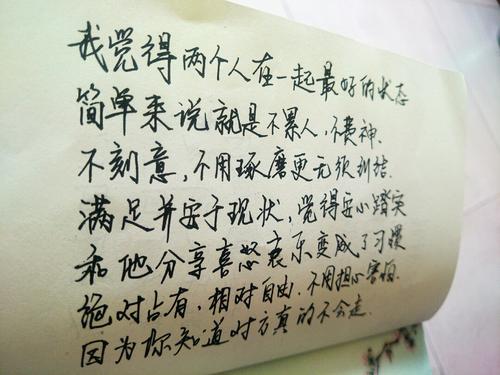 我觉得两个人在一起最好的状态
简单来说就是不累人，不费神、
不刻意，不用琢磨更无须纠结、
满足并安于现状，觉得安心踏实
和他分享喜怒哀乐变成了习惯
绝对占有，相对自由、不用担心害怕、
因为你知道对方真的不会走、